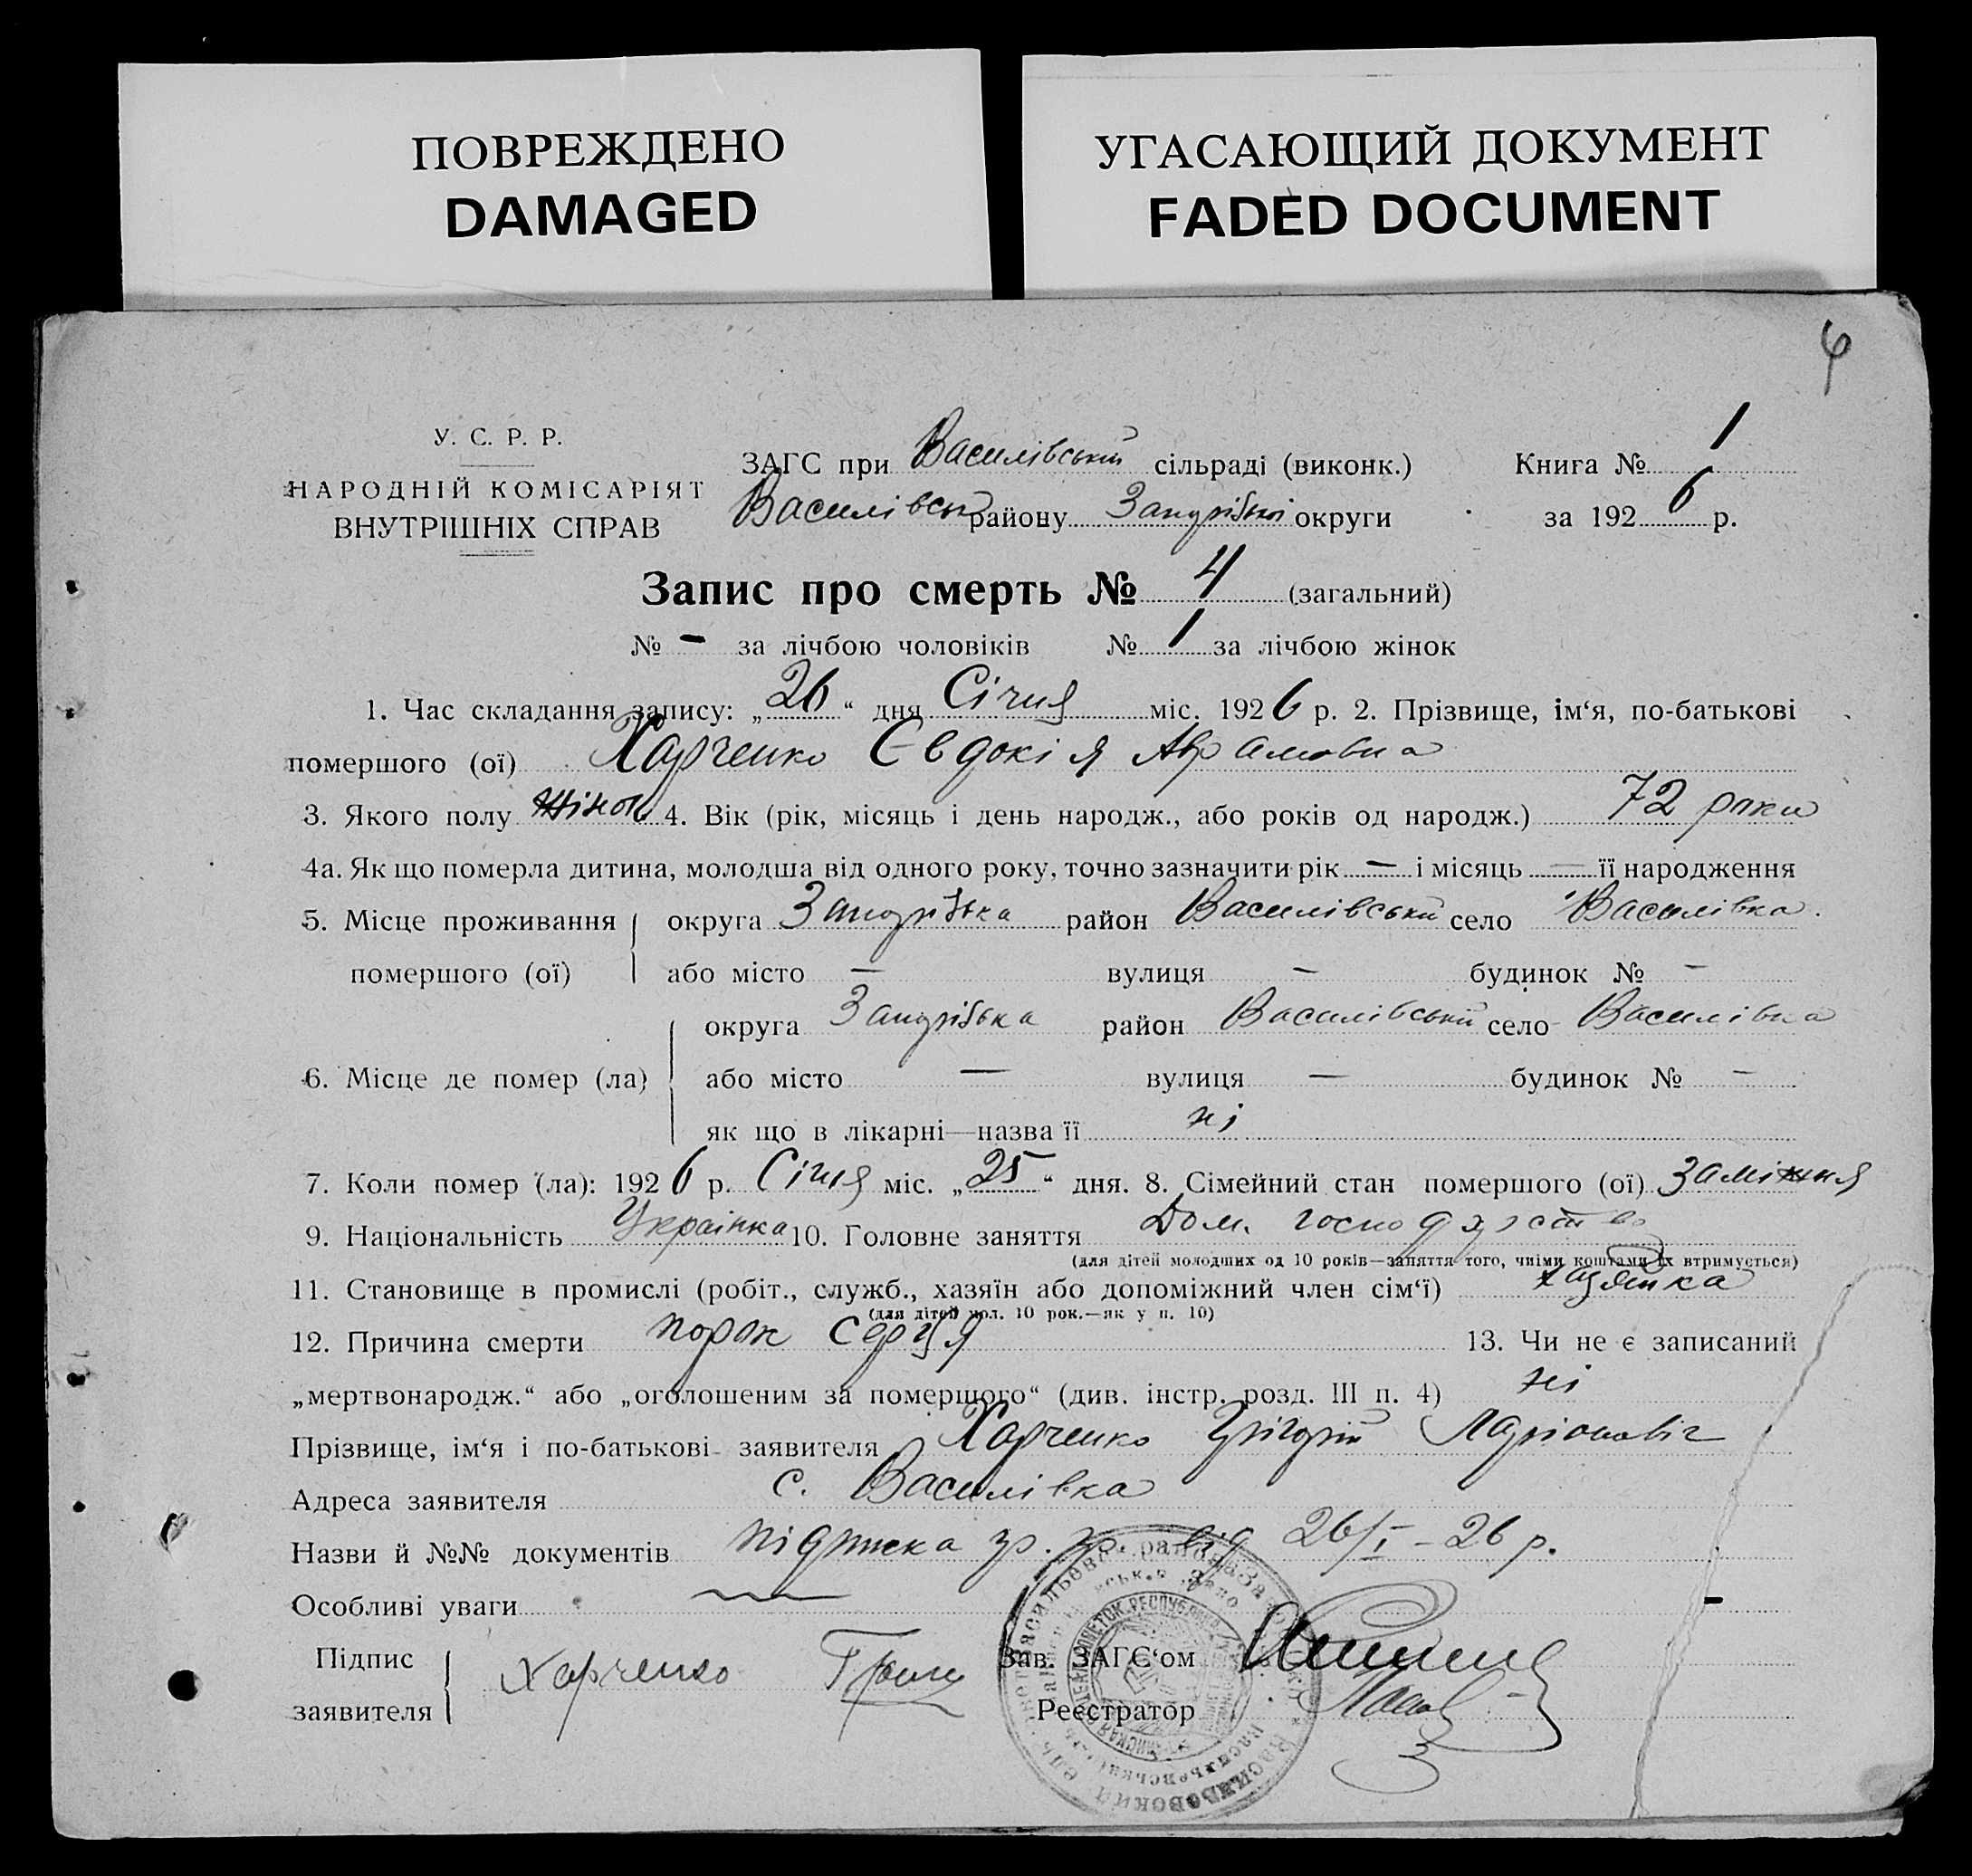 ПОВРЕЖДЕНО
DAMAGED
УГАСАЮЩИЙ ДОКУМЕНТ
FADED DOCUMENT
4
У. С. Р. Р.
НАРОДНІЙ КОМІСАРІЯТ
ВНУТРІШНІХ СПРАВ
ЗАГС при Василівській сільраді (виконк.)
Василівськ району Запорізької округи
Книга № 1
за 1926 р.
Запис про смерть № 4 (загальний)
№ – за лічбою чоловіків № 1 за лічбою жінок
1. Час складання запису: „26“ дня Січня міс. 1926 р. 2. Прізвище, ім‘я, по-батькові
помершого (ої) Харченко Євдокія Аврамовна
3. Якого полу жіноч 4. Вік (рік, місяць і день народж., або років од народж.) 72 роки
4а. Як що померла дитина, молодша від одного року, точно зазначити рік — і місяць — її народження
5. Місце проживання округа Запорізька район Василівський село Василівка
помершого (ої) або місто — вулиця — будинок № –
округа Запорізька район Василівський село Василівка
6. Місце де помер (ла) або місто — вулиця — будинок № –
як що в лікарні—назва її ні
7. Коли помер (ла): 1926 р. Січня міс. „25“ дня. 8. Сімейний стан помершого (ої) Заміжня
9. Національність Українка 10. Головне заняття Дом. господарство
(для дітей молодших од 10 років—заняття того, чиїми коштами їх втримується)
11. Становище в промислі (робіт., служб., хазяїн або допоміжний член сім‘ї) хазяйка
(для дітей мол. 10 рок.—як у п. 10)
12. Причина смерти порок серця 13. Чи не є записаний
„мертвонародж.“ або „оголошеним за померщого“ (див. інстр. розд. III п. 4) ні
Прізвище, ім‘я і по-батькові заявителя Харченко Грігорій Ларіоновіч
Адреса заявителя с. Василівка
Назви й №№ документів підписка гр. від 26/I – 26 р.
Особливі уваги
Підпис заявителя Харченко
Зав. ЗАГС‘ом
Реєстратор